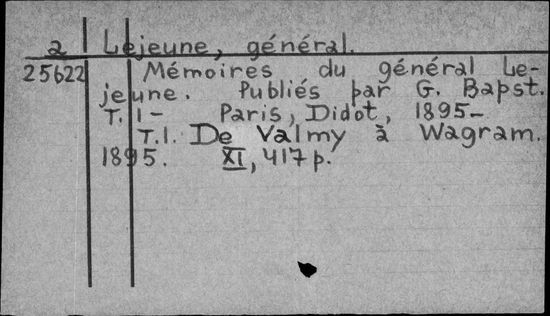 2 Lejeune, général.
25622 Mémoires du général Le-
jeune. Publiés par G. Bapst.
T. 1- Paris, Didot, 1895-
T.1. De Valmy à Wagram.
1895. XI, 417 p.